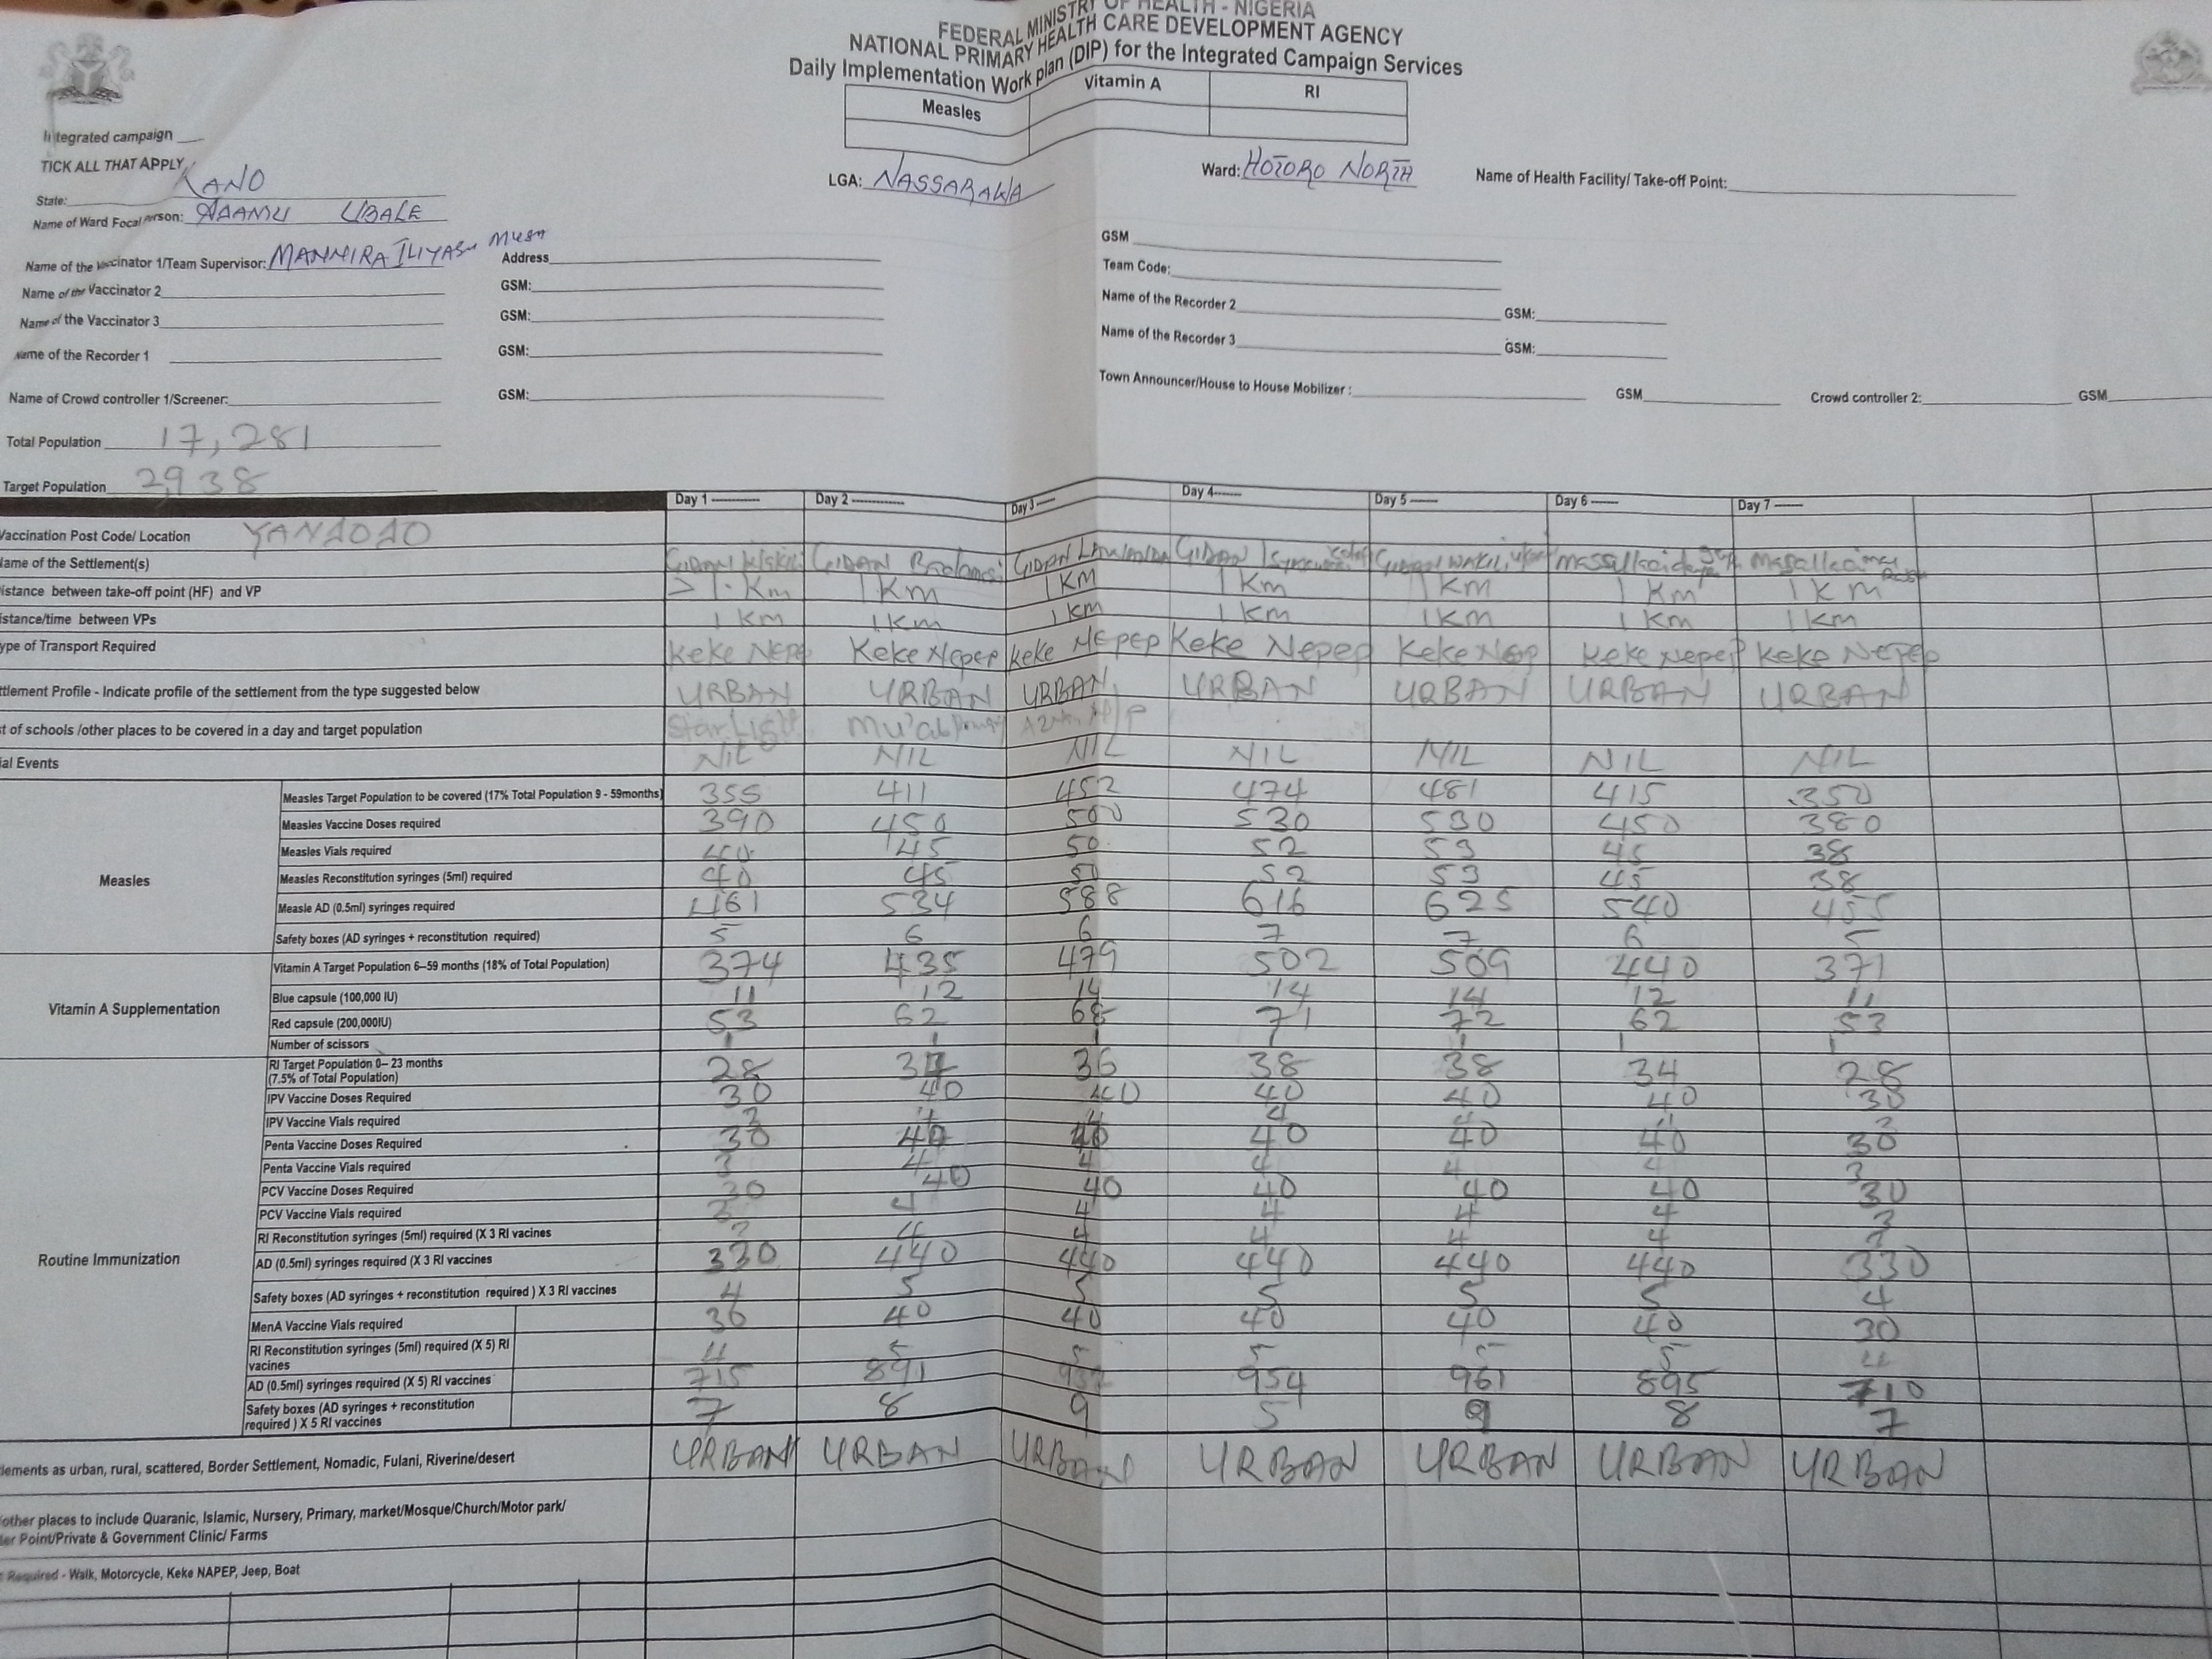 FEDERAL MINISTRY OF HEALTH - NIGERIA
NATIONAL PRIMARY HEALTH CARE DEVELOPMENT AGENCY
Daily Implementation Work plan (DIP) for the Integrated Campaign Services
Measles Vitamin A RI
Integrated campaign
TICK ALL THAT APPLY
State: KANO LGA: NASSARAWA Ward: HOTORO NORTH Name of Health Facility/ Take-off Point:
Name of Ward Focal Person: ADAMU UBALE GSM
Name of the Vaccinator 1/Team Supervisor: MANNIRA ILIYASU MUSA Address Team Code:
Name of the Vaccinator 2 GSM: Name of the Recorder 2 GSM:
Name of the Vaccinator 3 GSM: Name of the Recorder 3 GSM:
Name of the Recorder 1 GSM: Town Announcer/House to House Mobilizer : GSM Crowd controller 2: GSM
Name of Crowd controller 1/Screener: GSM:
Total Population 17,281
Target Population 2938
Day 1 Day 2 Day 3 Day 4 Day 5 Day 6 Day 7
Vaccination Post Code/ Location YANDODO
Name of the Settlement(s) GIDAN GIDAN GIDAN GIDAN GIDAN WAKILI
istance between take-off point (HF) and VP > 1 Km 1 Km 1 KM 1 Km 1 Km 1 Km 1 Km
istance/time between VPs 1 Km 1 Km 1 KM 1 Km 1 Km 1 Km 1 Km
ype of Transport Required Keke Nepep Keke Nepep Keke Nepep Keke Nepep Keke Nepep Keke Nepep
ttlement Profile - Indicate profile of the settlement from the type suggested below URBAN URBAN URBAN URBAN URBAN URBAN URBAN
st of schools /other places to be covered in a day and target population Star Light
ial Events NIL NIL NIL NIL NIL NIL NIL
Measles
Measles Target Population to be covered (17% Total Population 9 - 59months) 355 411 452 474 481 415 350
Measles Vaccine Doses required 390 450 500 530 530 450 380
Measles Vials required 40 45 50 52 53 45 38
Measles Reconstitution syringes (5ml) required 40 45 50 52 53 45 38
Measle AD (0.5ml) syringes required 461 534 588 616 625 540 455
Safety boxes (AD syringes + reconstitution required) 5 6 6 7 7 6 5
Vitamin A Supplementation
Vitamin A Target Population 6–59 months (18% of Total Population) 374 435 479 502 509 440 371
Blue capsule (100,000 IU) 11 12 14 14 14 12 11
Red capsule (200,000IU) 53 62 68 71 72 62 53
Number of scissors 1 1 1 1 1 1 1
Routine Immunization
RI Target Population 0– 23 months
(7.5% of Total Population) 28 34 36 38 38 34 28
IPV Vaccine Doses Required 30 40 40 40 40 40 30
IPV Vaccine Vials required 3 4 4 4 4 4 3
Penta Vaccine Doses Required 30 40 40 40 40 40 30
Penta Vaccine Vials required 3 4 4 4 4 4 3
PCV Vaccine Doses Required 30 40 40 40 40 40 30
PCV Vaccine Vials required 3 4 4 4 4 4 3
RI Reconstitution syringes (5ml) required (X 3 RI vacines 3 4 4 4 4 4 3
AD (0.5ml) syringes required (X 3 RI vaccines 330 440 440 440 440 440 330
Safety boxes (AD syringes + reconstitution required ) X 3 RI vaccines 4 5 5 5 5 5 4
MenA Vaccine Vials required 30 40 40 40 40 40 30
RI Reconstitution syringes (5ml) required (X 5) RI
vacines 4 5 5 5 5 5 4
AD (0.5ml) syringes required (X 5) RI vaccines 715 891 932 954 961 895 710
Safety boxes (AD syringes + reconstitution
required ) X 5 RI vaccines 7 8 9 5 9 8 7
lements as urban, rural, scattered, Border Settlement, Nomadic, Fulani, Riverine/desert URBAN URBAN URBAN URBAN URBAN URBAN URBAN
other places to include Quaranic, Islamic, Nursery, Primary, market/Mosque/Church/Motor park/
er Point/Private & Government Clinic/ Farms
Required - Walk, Motorcycle, Keke NAPEP, Jeep, Boat